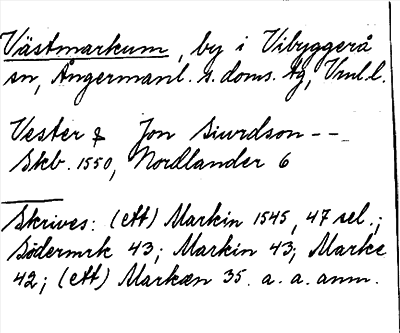 Västmarkum, by i Vibyggerå
sn, Ångermanl. s. doms. tg, Vnl.l.
Vester Jon Siurdson --
Skb. 1550, Nordlander 6
Skrives: (ett) Markin 1545, 47 sel.;
Södermrk 43; Markin 43; Marke
42; (ett) Markæn 35. a. a. anm.